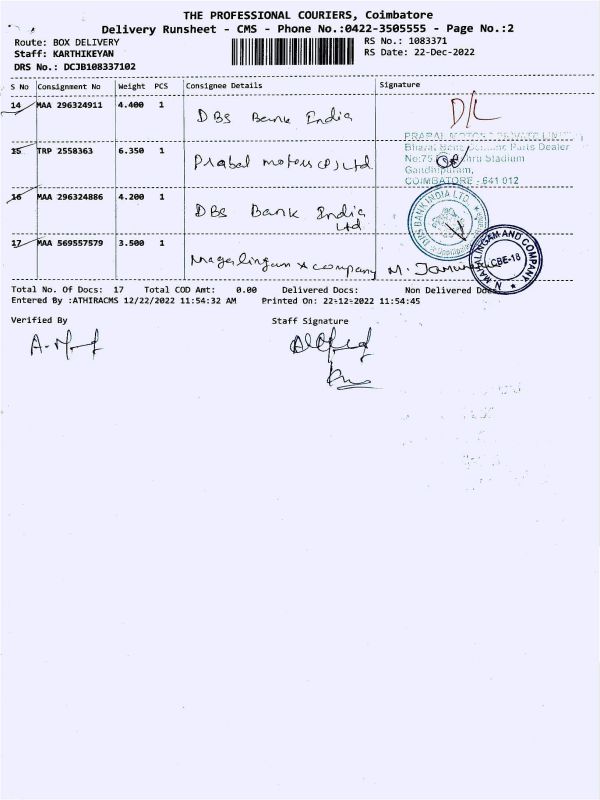 THE PROFESSIONAL COURIERS, Coimbatore
Delivery Runsheet - CMS - Phone No.:0422-3505555 - Page No.:2
Route: BOX DELIVERY
RS No.: 1083371
Staff: KARTHIKEYAN
RS Date: 22-Dec-2022
DRS No.: DCJB108337102
S No Consignment No Weight PCS Consignee Details Signature
14 MAA 296324911 4.400 1 DBS Bank India D/L
PRABAL MOTORS PRIVATE LIMITED
15 TRP 2558363 6.350 1 Prabal motors (P) Ltd
Parts Dealer
No:75 Stadium
Gandhipuram,
COIMBATORE - 641 012
16 MAA 296324886 4.200 1 DBS Bank India Ltd
DBS BANK INDIA LTD.
17 MAA 569557579 3.500 1 Magerlingam & company M.
N. MAHALINGAM AND COMPANY
CBE-18
Total No. Of Docs: 17 Total COD Amt: 0.00 Delivered Docs: Non Delivered
Entered By :ATHIRACMS 12/22/2022 11:54:32 AM Printed On: 22-12-2022 11:54:45
Verified By Staff Signature